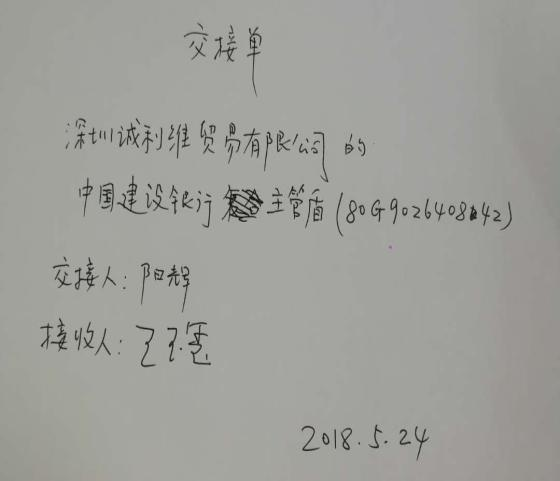 交接单
深圳诚利维贸易有限公司的
中国建设银行主管盾(80G902640842)
交接人:阳辉
接收人:王
2018.5.24